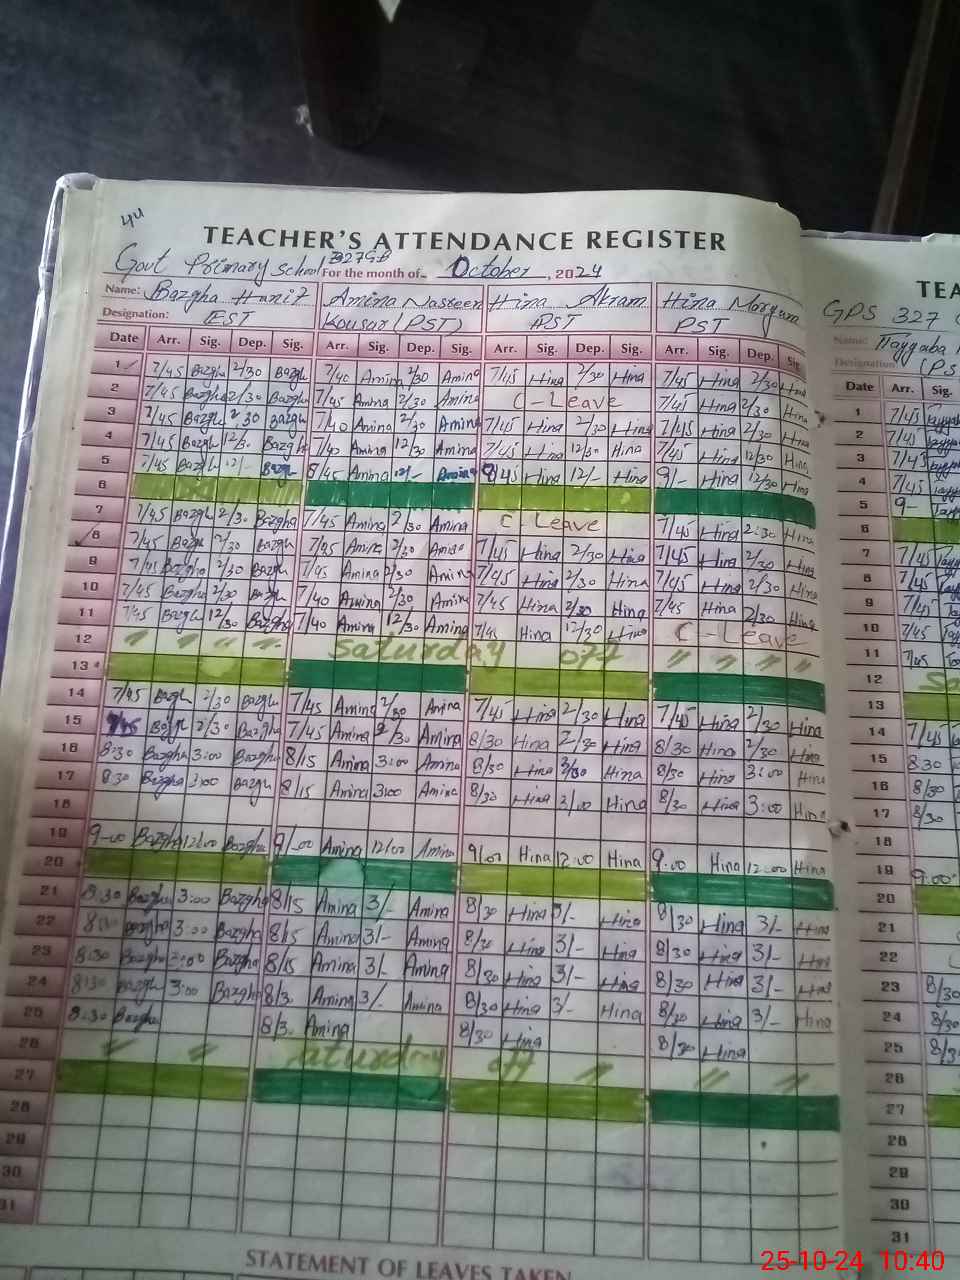 44
TEACHER'S ATTENDANCE REGISTER
Govt Primary School 327GB For the month of October, 2024
Name: Bazgha Hanif Amina Nasreen Hina Akram Hina Maryam
Designation: EST Kousar (PST) PST PST
Date Arr. Sig. Dep. Sig. Arr. Sig. Dep. Sig. Arr. Sig. Dep. Sig. Arr. Sig. Dep. Sig.
1 7/45 Bazgha 2/30 Bazgha 7/40 Amina 2/30 Amina 7/45 Hina 2/30 Hina 7/45 Hina 2/30 Hina
2 7/45 Bazgha 2/30 Bazgha 7/45 Amina 2/30 Amina C-Leave 7/45 Hina 2/30 Hina
3 7/45 Bazgha 2/30 Bazgha 7/40 Amina 2/30 Amina 7/45 Hina 2/30 Hina 7/45 Hina 2/30 Hina
4 7/45 Bazgha 12/30 Bazgha 7/40 Amina 12/30 Amina 7/45 Hina 12/30 Hina 7/45 Hina 12/30 Hina
5 7/45 Bazgha 12/- Bazgha 8/45 Amina 12/- Amina 8/45 Hina 12/- Hina 9/- Hina 12/30 Hina
6
7 7/45 Bazgha 2/30 Bazgha 7/45 Amina 2/30 Amina C-Leave 7/45 Hina 2:30 Hina
8 7/45 Bazgha 2/30 Bazgha 7/45 Amina 2/30 Amina 7/45 Hina 2/30 Hina 7/45 Hina 2/30 Hina
9 7/45 Bazgha 2/30 Bazgha 7/45 Amina 2/30 Amina 7/45 Hina 2/30 Hina 7/45 Hina 2/30 Hina
10 7/45 Bazgha 2/30 Bazgha 7/40 Amina 2/30 Amina 7/45 Hina 2/30 Hina 7/45 Hina 2/30 Hina
11 7/45 Bazgha 12/30 Bazgha 7/40 Amina 12/30 Amina 7/45 Hina 12/30 Hina C-Leave
12 " " " " Saturday off " " " "
13
14 7/45 Bazgha 2/30 Bazgha 7/45 Amina 2/30 Amina 7/45 Hina 2/30 Hina 7/45 Hina 2/30 Hina
15 Bazgha 2/30 Bazgha 7/45 Amina 2/30 Amina 8/30 Hina 2/30 Hina 8/30 Hina 2/30 Hina
16 8:30 Bazgha 3:00 Bazgha 8/15 Amina 3:00 Amina 8/30 Hina Hina 8/30 Hina 3:00 Hina
17 8:30 Bazgha 3:00 Bazgha 8/15 Amina 3:00 Amina 8/30 Hina 3/00 Hina 8/30 Hina 3:00 Hina
18
19 9-00 Bazgha 12:00 Bazgha 9/-00 Amina 12:00 Amina 9/00 Hina 12:00 Hina 9.00 Hina 12:00 Hina
20
21 8:30 Bazgha 3:00 Bazgha 8/15 Amina 3/- Amina 8/30 Hina 3/- Hina 8/30 Hina 3/- Hina
22 Bazgha 3:00 Bazgha 8/15 Amina 3/- Amina 8/30 Hina 3/- Hina 8/30 Hina 3/- Hina
23 8:30 Bazgha 3:00 Bazgha 8/15 Amina 3/- Amina 8/30 Hina 3/- Hina 8/30 Hina 3/- Hina
24 8:30 Bazgha 3:00 Bazgha 8/30 Amina 3/- Amina 8/30 Hina 3/- Hina 8/30 Hina 3/- Hina
25 8:30 Bazgha 8/30 Amina 8/30 Hina 8/30 Hina
26 " " Saturday off " " "
27
28
29
30
31
STATEMENT OF LEAVES TAKEN
TEA
GPS 327
Name: Tayyaba
Designation: (PS
Date Arr. Sig.
1 7/45
2 7/45
3 7/45
4 7/45
5 9-
6
7 7/45
8 7/45
9 7/45
10 7/45
11 7/45
12 Sa
13
14 7/45
15 8:30
16 8/30
17 8/30
18
19 9:00
20
21
22
23 8/30
24 8/30
25 8/3
26
27
28
29
30
31
25-10-24 10:40